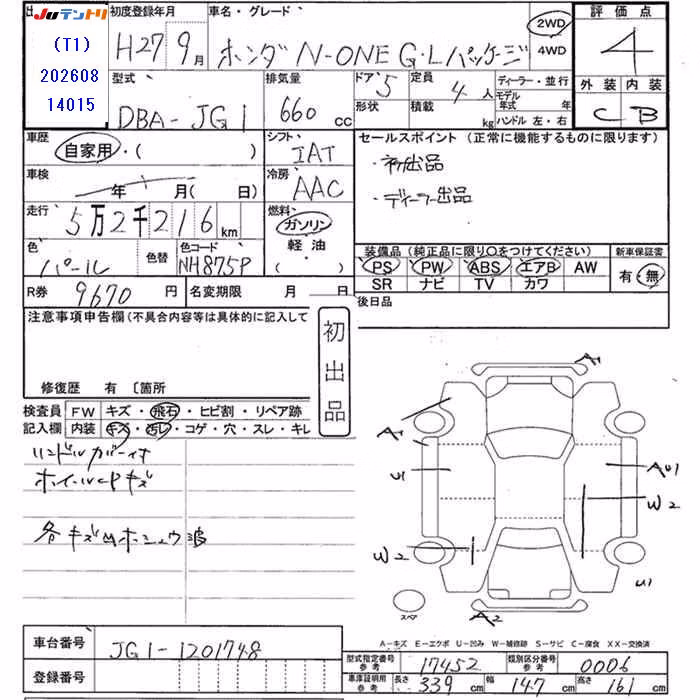 Juテントリ
(T1)
202608
14015
初度登録年月
H27 9月
車名・グレード
ホンダ N-ONE G・Lパッケージ
2WD
4WD
評価点
4
外装 内装
C B
型式
DBA-JG1
排気量
660 cc
ドア 5
形状
定員 4人
積載 kg
ディーラー・並行
モデル年式 年
ハンドル 左・右
車歴
自家用・( )
シフト
IAT
セールスポイント (正常に機能するものに限ります)
・初出品
・ディーラー出品
車検
年 月( 日)
冷房
AAC
走行
5万2千216km
燃料
ガソリン
軽油
( )
色
パール
色替
色コード
NH875P
装備品 (純正品に限り○をつけてください)
PS PW ABS エアB AW
SR ナビ TV カワ
新車保証書
有・無
R券 9670円
名変期限 月 日
後日品
注意事項申告欄(不具合内容等は具体的に記入して
初出品
修復歴 有 〔箇所
検査員記入欄
FW キズ・飛石・ヒビ割・リペア跡
内装 キズ・汚レ・コゲ・穴・スレ・キレ
ハンドルカバー付
ホイールCPキズ
各キズ凹ホシュウ波
A1
A1
U1
A U1
W2
W2
U1
A2
スペア
A-キズ E-エクボ U-凹み W-補修跡 S-サビ C-腐食 XX-交換済
車台番号
JG1-1201748
登録番号
型式指定番号 参考 17452
類別区分番号 参考 0006
車庫証明用 参考 長さ 339 cm 幅 147 cm 高さ 161 cm